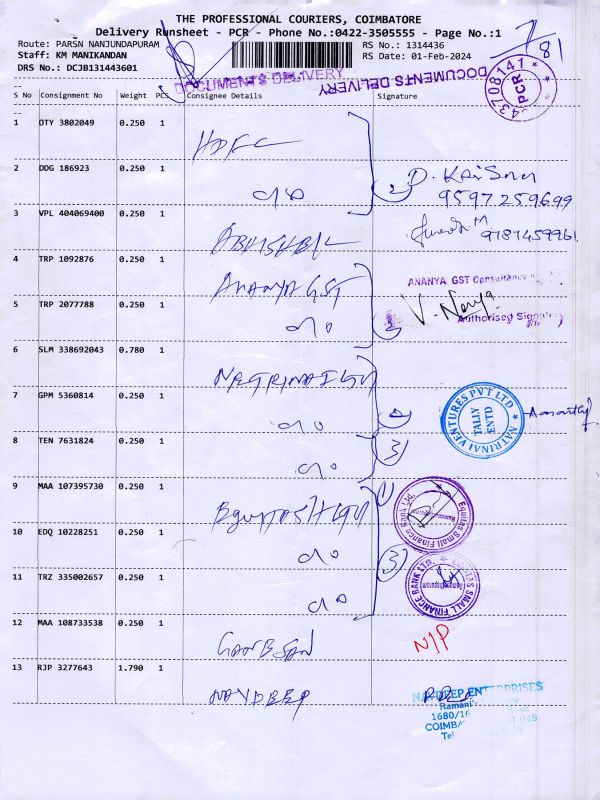 THE PROFESSIONAL COURIERS, COIMBATORE
Delivery Runsheet - PCR - Phone No.:0422-3505555 - Page No.:1
Route: PARSN NANJUNDAPURAM
RS No.: 1314436
Staff: KM MANIKANDAN
RS Date: 01-Feb-2024
DRS No.: DCJB131443601
7/81
DOCUMENTS DELIVERY
DOCUMENTS DELIVERY
PCR
S No Consignment No Weight PCS Consignee Details Signature
1 OTY 3802049 0.250 1 HDFC
2 DDG 186923 0.250 1
2
9597259699
3 VPL 404069400 0.250 1
9787459961
4 TRP 1092876 0.250 1 ANANYA GST
ANANYA GST Consultancy
5 TRP 2077788 0.250 1
V. Nanya
Authorised Signatory
6 SLM 338692043 0.780 1
7 GPM 5360814 0.250 1
NATRINAI VENTURES PVT LTD
TALLY
ENTD
8 TEN 7631824 0.250 1
3
9 MAA 107395730 0.250 1
Equitas Small Finance Bank Ltd.
10 EDQ 10228251 0.250 1
3
11 TRZ 335002657 0.250 1
EQUITAS SMALL FINANCE BANK LTD.
12 MAA 108733538 0.250 1 GANESAN
N/P
13 RJP 3277643 1.790 1 NAVDEEP
NAVDEEP ENTERPRISES
1680/16
COIMBA
Tel